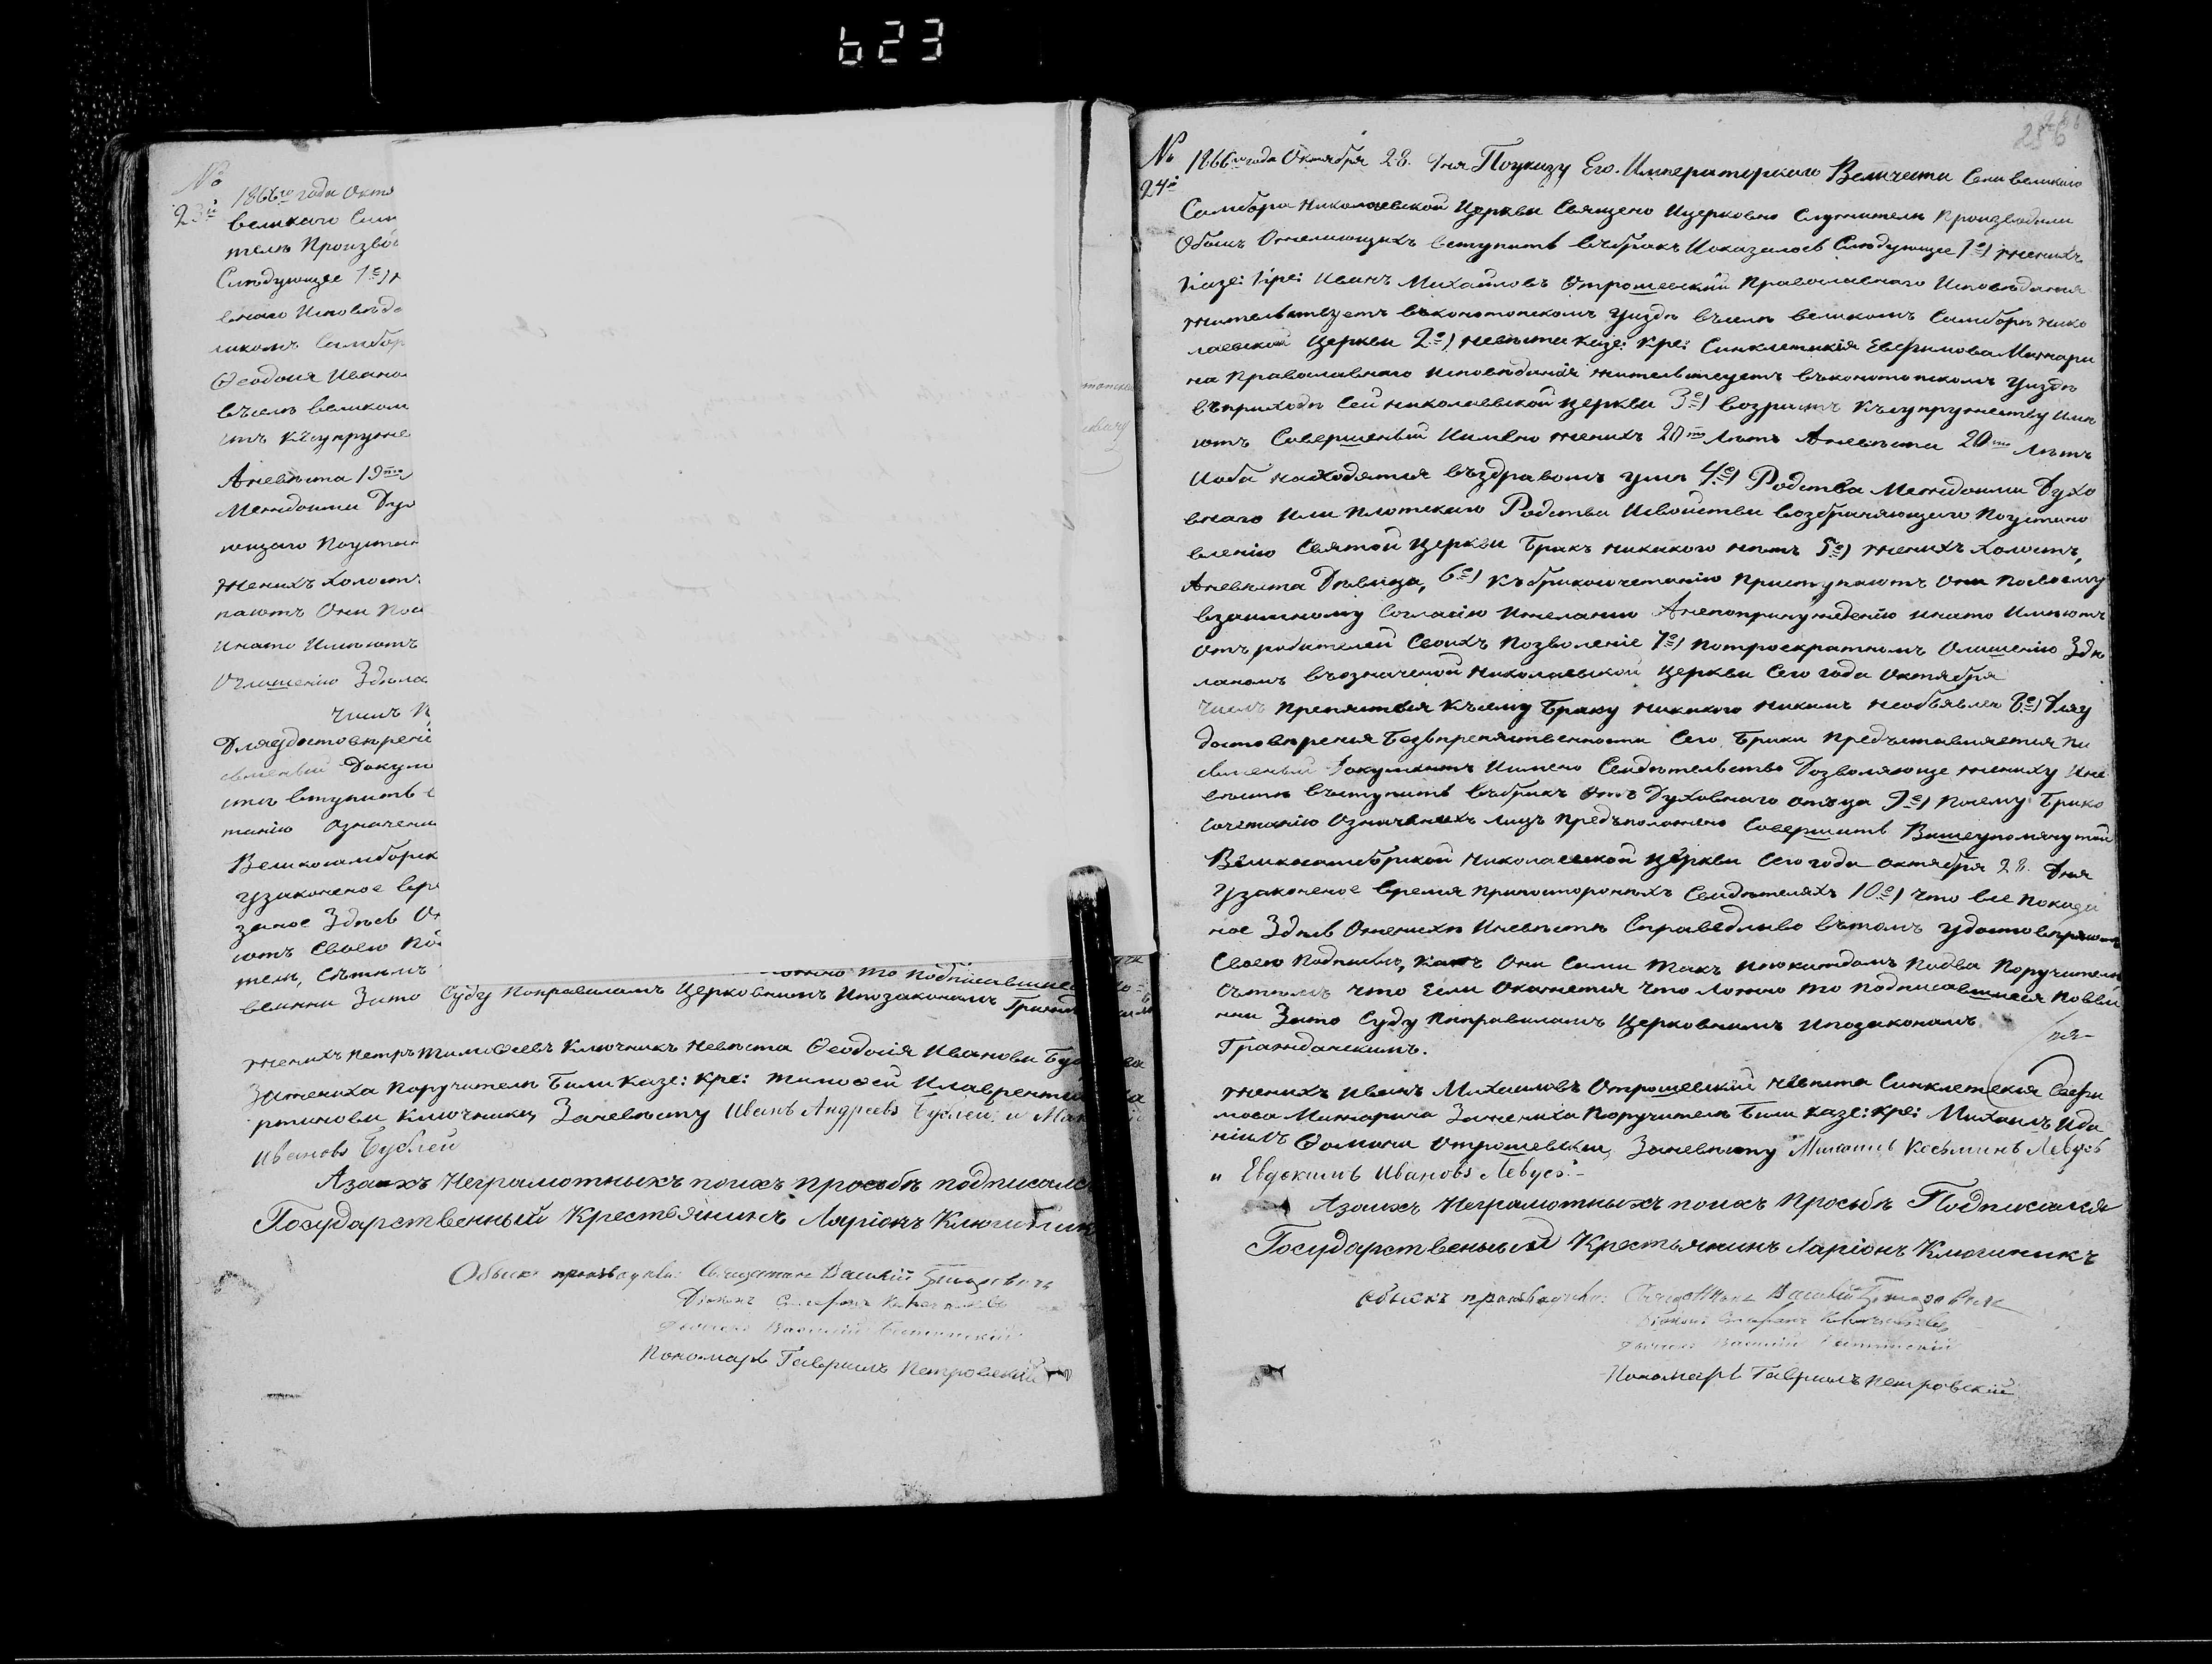 623
№
23й
1866го года Октя
великого Сам
тели Произво
Следующее 1е)
внаго Исповѣда
ликомъ Самбор
Ѳеодосія Ивано
въ селѣ великом
ютъ Къ супруже
Аневѣста 19ти
Междоими Дух
ющаго Поустан
Женихъ холостъ
паютъ Они Пос
инато Имѣютъ
Оглашенію Здѣла
числъ
Дляудостовѣрені
сменный Докуме
стѣ вступить
танію Означени
Великосамборск
узаконеное вре
заное Здѣсь О
ютъ Своею По
тели, Сътѣмъ
ложно то Подписавшиеся
винни Зато Суду Поправиламъ Церковнимъ Ипозаконамъ
Женихъ Петръ Тимоѳеевъ Ключникъ Невѣста Ѳеодосія Иванова
Зажениха Поручители Били Казе: Кре: Тимоѳей Илаврентій
ртинови Ключники, Заневѣсту Иванъ Андреевъ Бублей и
Ивановъ Бублей
Азаихъ Неграмотныхъ поихъ просьбѣ подписался
Государственный Крестьянинъ Ларіонъ Ключникъ
Обыскъ производили: Священникъ Василій
Діаконъ Стефанъ
Василій
Пономарь Гавриилъ Петровскій
286
№
24й
1866го года Октября 28. дня Поуказу Его. Императорскаго Величества Села великаго
Самбора Николаевской Церкви Священо Ицерковно Служители Производили
Обыскъ Ожелающихъ вступить въбракъ Иоказалось Слѣдующее 1е) Женихъ
Казе: Кре: Иванъ Михайловъ Отрошевский Православнаго Исповѣдания
жительствуетъ въконотопскомъ уиздѣ въселѣ великомъ Самборѣ Нико
лаевской Церкви 2е) Невѣста Казе: Кре: Синклетикія Евфимова Митари
на Православнаго Исповѣданія жительствуетъ въконотопскомъ уиздѣ
въприходѣ Сей Николаевской Церкви 3е) возрастъ Къ супружеству Имѣ
ютъ Совершеный Именно женихъ 20ть Лѣтъ Аневѣста 20ть Лѣтъ
Иоба находятся въздравомъ умѣ 4е) Родства Междоими Духо
внаго Или Плотскаго Родства Исвойства возбраняющаго Поустано
влению Святой Церкви Бракъ никакого нѣтъ 5е) женихъ холостъ,
Аневѣста Дѣвица, 6е) Къбракосочетанію приступаютъ Они Посвоему
взаимному Согласію Ижеланію Анепопринуждению инато Имѣютъ
Отъ родителей Своихъ Позволеніе 7е) Потроекратномъ Оглашенію Здѣ
ланомъ въозначеной Николаевской Церкви Сего года Октября
числъ Препятствія Късему Браку никакого никимъ необъявлено 8е) Дляу
достовѣрения Безвпрепятственности Сего Брака Представляется Пи
сменный Документъ Имено Свидѣтельство Дозволяюще жениху Ине
вѣсти въступить въбракъ Отъ Духовнаго отъца 9е) Посему Брако
сочетанію Означеныхъ лицъ Предъположено Совершить Вишеупомянутой
Великосамборской Николаевской Церкви Сего года октября 28. Дня
Узаконеное время припосторонихъ Свидѣтеляхъ 10е) что все Показа
ное Здѣсь Оженихѣ Иневѣстѣ Справедливо вътомъ удостовѣряютъ
Своею Подписью, какъ Они Сами такъ Ипокаждомъ Подва Поручителя
Сътимъ что Если Окажется что ложно то Подписавшиеся Повин
нии Зато Суду Поправиламъ Церковнимъ Ипозаконамъ
Гражданскимъ.
Женихъ Иванъ Михаиловъ Отрошевский Невѣста Синклетекія Евфи
мова Митарина Зажениха Поручители Били Казе: Кре: Михаилъ Ида
ніилъ Ѳомини Отрошевски, Заневѣсту Михаилъ Косьминъ Левусь
и Евдокимъ Ивановъ Левусь.
Азаихъ Неграмотныхъ поихъ Просьбѣ Подписался
Государственный Крестьянинъ Ларіонъ Ключникъ
Обыскъ производили: Священникъ Василій
Діаконъ Стефанъ
Василій
Пономарь Гавриилъ Петровскій